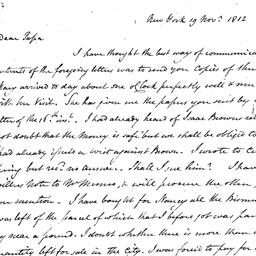 New York 19 Nov. 1812
Dear Papa
I have thought the best way of communica
ontents of the foregoing letters was to send you Copies of them
Mary arrived to day about one oClock perfectly well & m
with the Visit. She has given me the papers you sent by
letter of the 16th ins. I had already heard of Isaac Browns
not doubt that the Money is safe but we shall be obliged to
had already issued a writ against Brown. I wrote to C
but rec'd no answer. Shall I sue him? I have
Note to Mr. Munro, & will procure the other
you mention. I have bought for Nancy all the
was left of the parcel of which that I before got was par
ly near a pound. I doubt whether there is more than
quantity left for sale in the City. I was forced to pay for